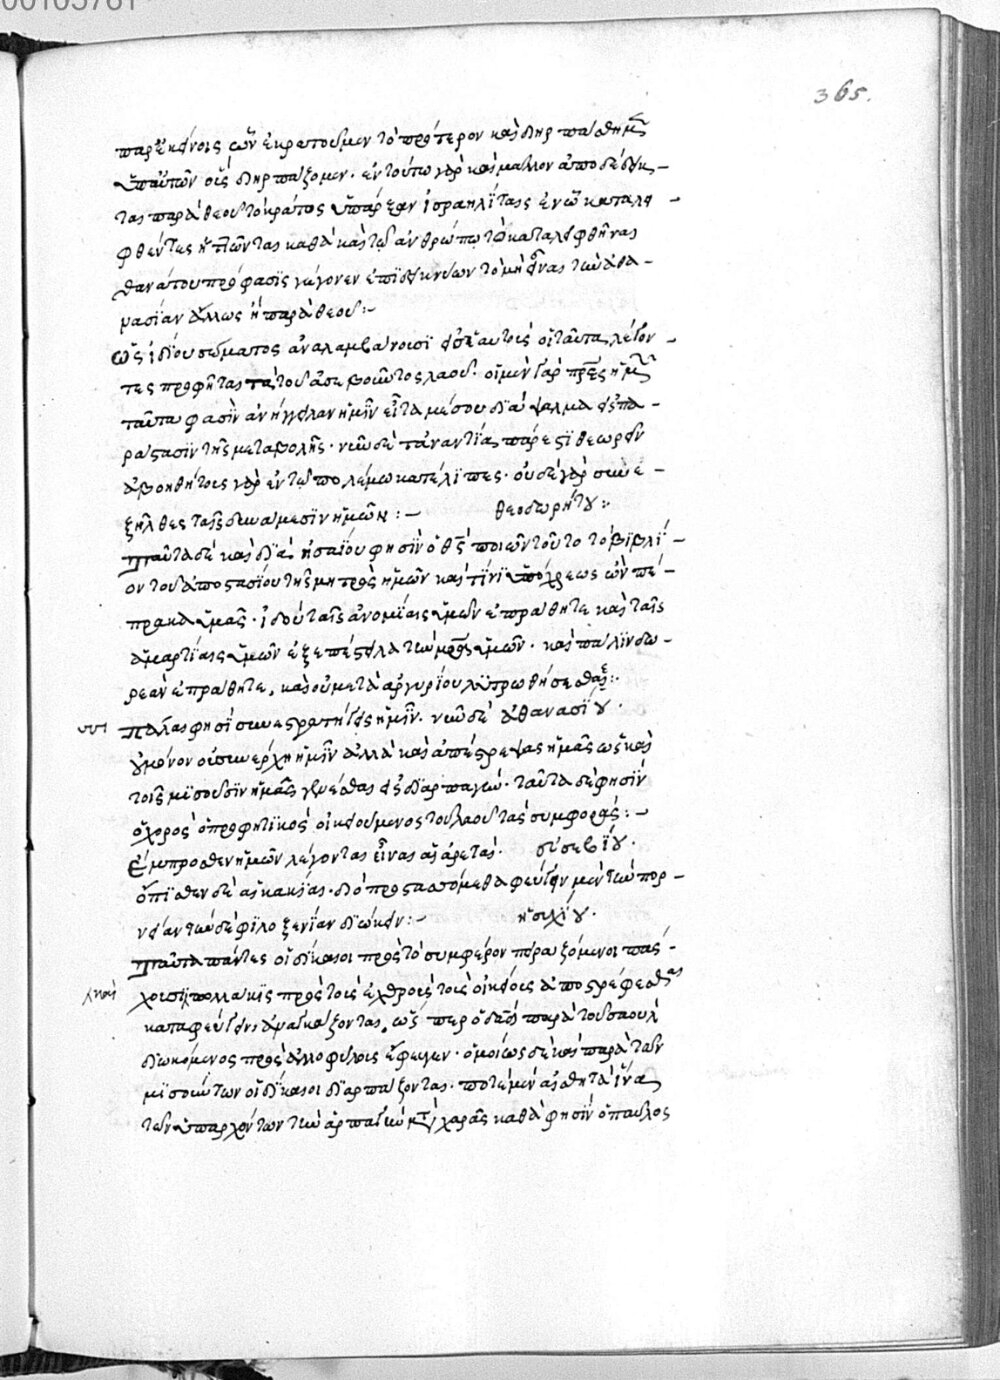 00105781
365.
παρ' ἐκείνοις ὧν ἐκρατοῦμεν τὸ πρότερον καὶ διηρπάσθημεν
ὑπ' αὐτῶν οὓς διηρπάζομεν· ἐν τούτω γὰρ καὶ μᾶλλον ἀποδέδεικ-
ται παρὰ θεοῦ τὸ κράτος ὑπάρξαν ἰσραηλίταις ἐν ᾧ καταλη-
φθέντες ἡττῶνται καθὰ καὶ τῷ ἀνθρώπῳ τὸ καταλειφθῆναι
θανάτου πρόφασις γέγονεν ἐπιδεικνύων τὸ μὴ εἶναι τὴν ἀθα-
νασίαν ἄλλως ἢ παρὰ θεοῦ:-
ὡς ἰδίου σώματος ἀναλαμβάνουσι εἰς ἑαυτοὺς οἱ ταῦτα λέγον-
τες προφῆται τὰ τοῦ ἀσεβοῦντος λαοῦ· οἱ μὲν γὰρ πρες ἡμῶν
ταῦτα φασὶν ἀνήγγειλαν ἡμῖν εἶτα μέσου διάψαλμα εἰς πα-
ράστασιν τῆς μεταβολῆς· νῦν δὲ τἀναντία πάρεστι θεωρεῖν
ἀβοηθήτους γὰρ ἐν τῷ πολέμω κατέλιπες· οὐδὲ γὰρ συνε-
ξῆλθες ταῖς δυνάμεσιν ἡμῶν:- θεοδωρήτου:
ταῦτα δὲ καὶ διὰ ἡσαΐου φησὶν ὁ θς ποιῶν τοῦτο τὸ βιβλί-
ον τοῦ ἀποστασίου τῆς μητρὸς ὑμῶν καὶ τίνι ὑπόχρεως ὢν πέ-
πρακα ὑμᾶς· ἰδοὺ ταῖς ἀνομίαις ὑμῶν ἐπράθητε καὶ ταῖς
ἁμαρτίαις ὑμῶν ἐξαπέστειλα τὴν μρα ὑμῶν· καὶ πάλιν δω-
ρεὰν ἐπράθητε, καὶ οὐ μετὰ ἀργυρίου λυτρωθήσεσθαι:
πάλαι φησὶ συνεστρατήγεις ἡμῖν· νῦν δὲ ἀθανασίου·
οὐ μόνον οὐ συνέρχη ἡμῖν ἀλλὰ καὶ ἀπέστρεψας ἡμᾶς ὡς καὶ
τοῖς μισοῦσιν ἡμᾶς γενέσθαι εἰς διαρπαγήν· ταῦτα δὲ φησὶν
ὁ χορὸς ὁ προφητικὸς οἰκειούμενος τοῦ λαοῦ τὰς συμφοράς:-
ἔμπροσθεν ἡμῶν λέγονται εἶναι αἱ ἀρεταί· εὐσεβίου·
ὄπισθεν δὲ αἱ κακίαι· διὸ προστασσόμεθα φεύγειν μὲν τὴν πορ-
νείαν τὴν δὲ φιλοξενίαν διώκειν:- ἡσυχίου·
ταῦτα πάντες οἱ δίκαιοι πρὸς τὸ συμφέρον πειραζόμενοι πάσ-
χουσι πολλάκις πρὸς τοὺς ἐχθροὺς τοὺς οἰκείους ἀποστρέφεσθαι
καὶ
καταφεύγειν ἀναγκάζονται, ὥς περ ὁ δαδ παρὰ τοῦ σαοὺλ
διωκόμενος πρὸς ἀλλοφύλους ἔφευγεν· ὁμοίως δὲ καὶ παρὰ τῶν
μισούντων οἱ δίκαιοι διαρπάζονται· ποτὲ μὲν αἰσθητὰ ἵνα
τῶν ὑπαρχόντων τὴν ἁρπαγὴν μετὰ χαρᾶς καθὰ φησὶν ὁ παῦλος